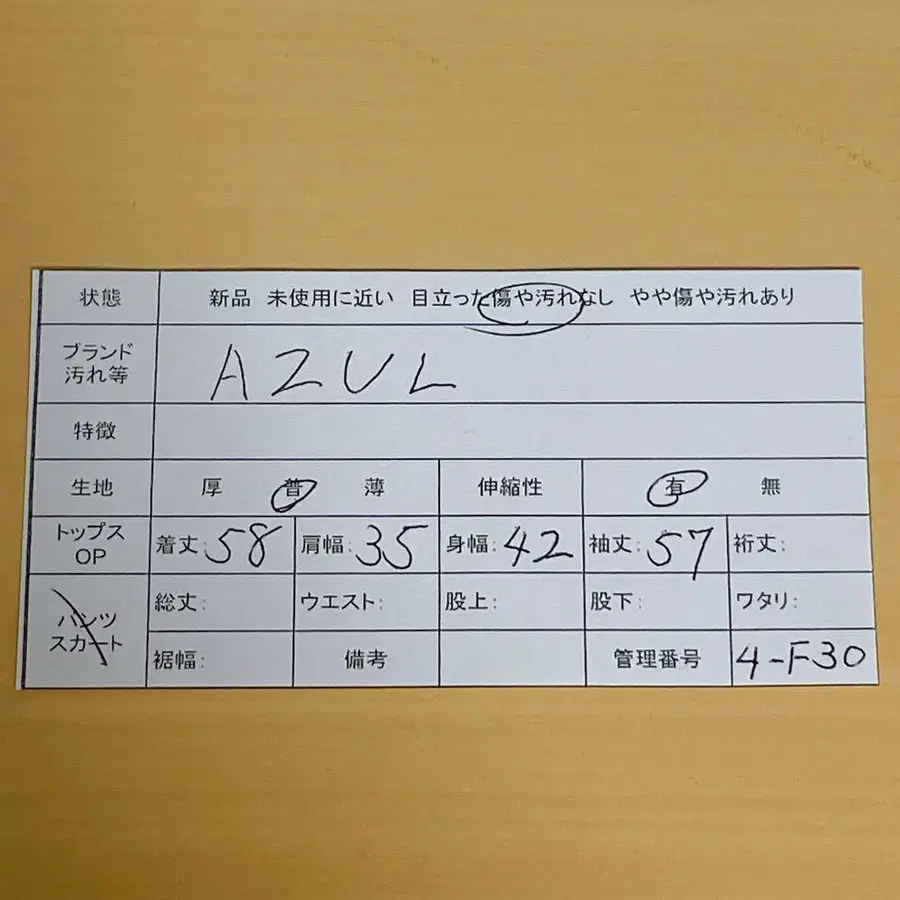 状態 新品 未使用に近い 目立った傷や汚れなし やや傷や汚れあり
ブランド
汚れ等 AZUL
特徴
生地 厚 普 薄 伸縮性 有 無
トップス
OP 着丈:58 肩幅:35 身幅:42 袖丈:57 裄丈:
パンツ
スカート 総丈: ウエスト: 股上: 股下: ワタリ:
裾幅: 備考 管理番号 4-F30